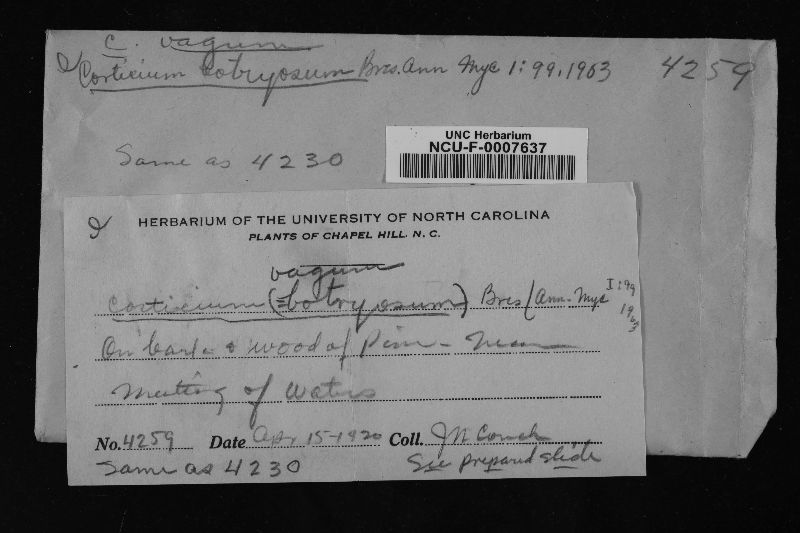 C. vagum
Corticium botryosum Bres. Ann Myc 1:99,1963 4259
Same as 4230
UNC Herbarium
NCU-F-0007637
HERBARIUM OF THE UNIVERSITY OF NORTH CAROLINA
PLANTS OF CHAPEL HILL, N. C.
vagum
Corticium (=botryosum) Bres (Ann. Myc I:99
1963
On bark & wood of Pine - Near
Meeting of Waters
No. 4259 Date Apr 15-1920 Coll. JN Couch
Same as 4230 See prepared slide